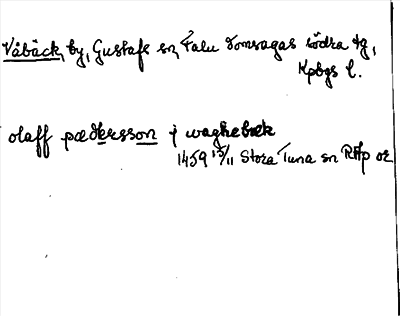 Våbäck, by, Gustafs sn, Falu domsagas södra tg,
Kpbgs l.
olaff pædersson j waghebæk
1459 13/11 Stora Tuna sn RAp or